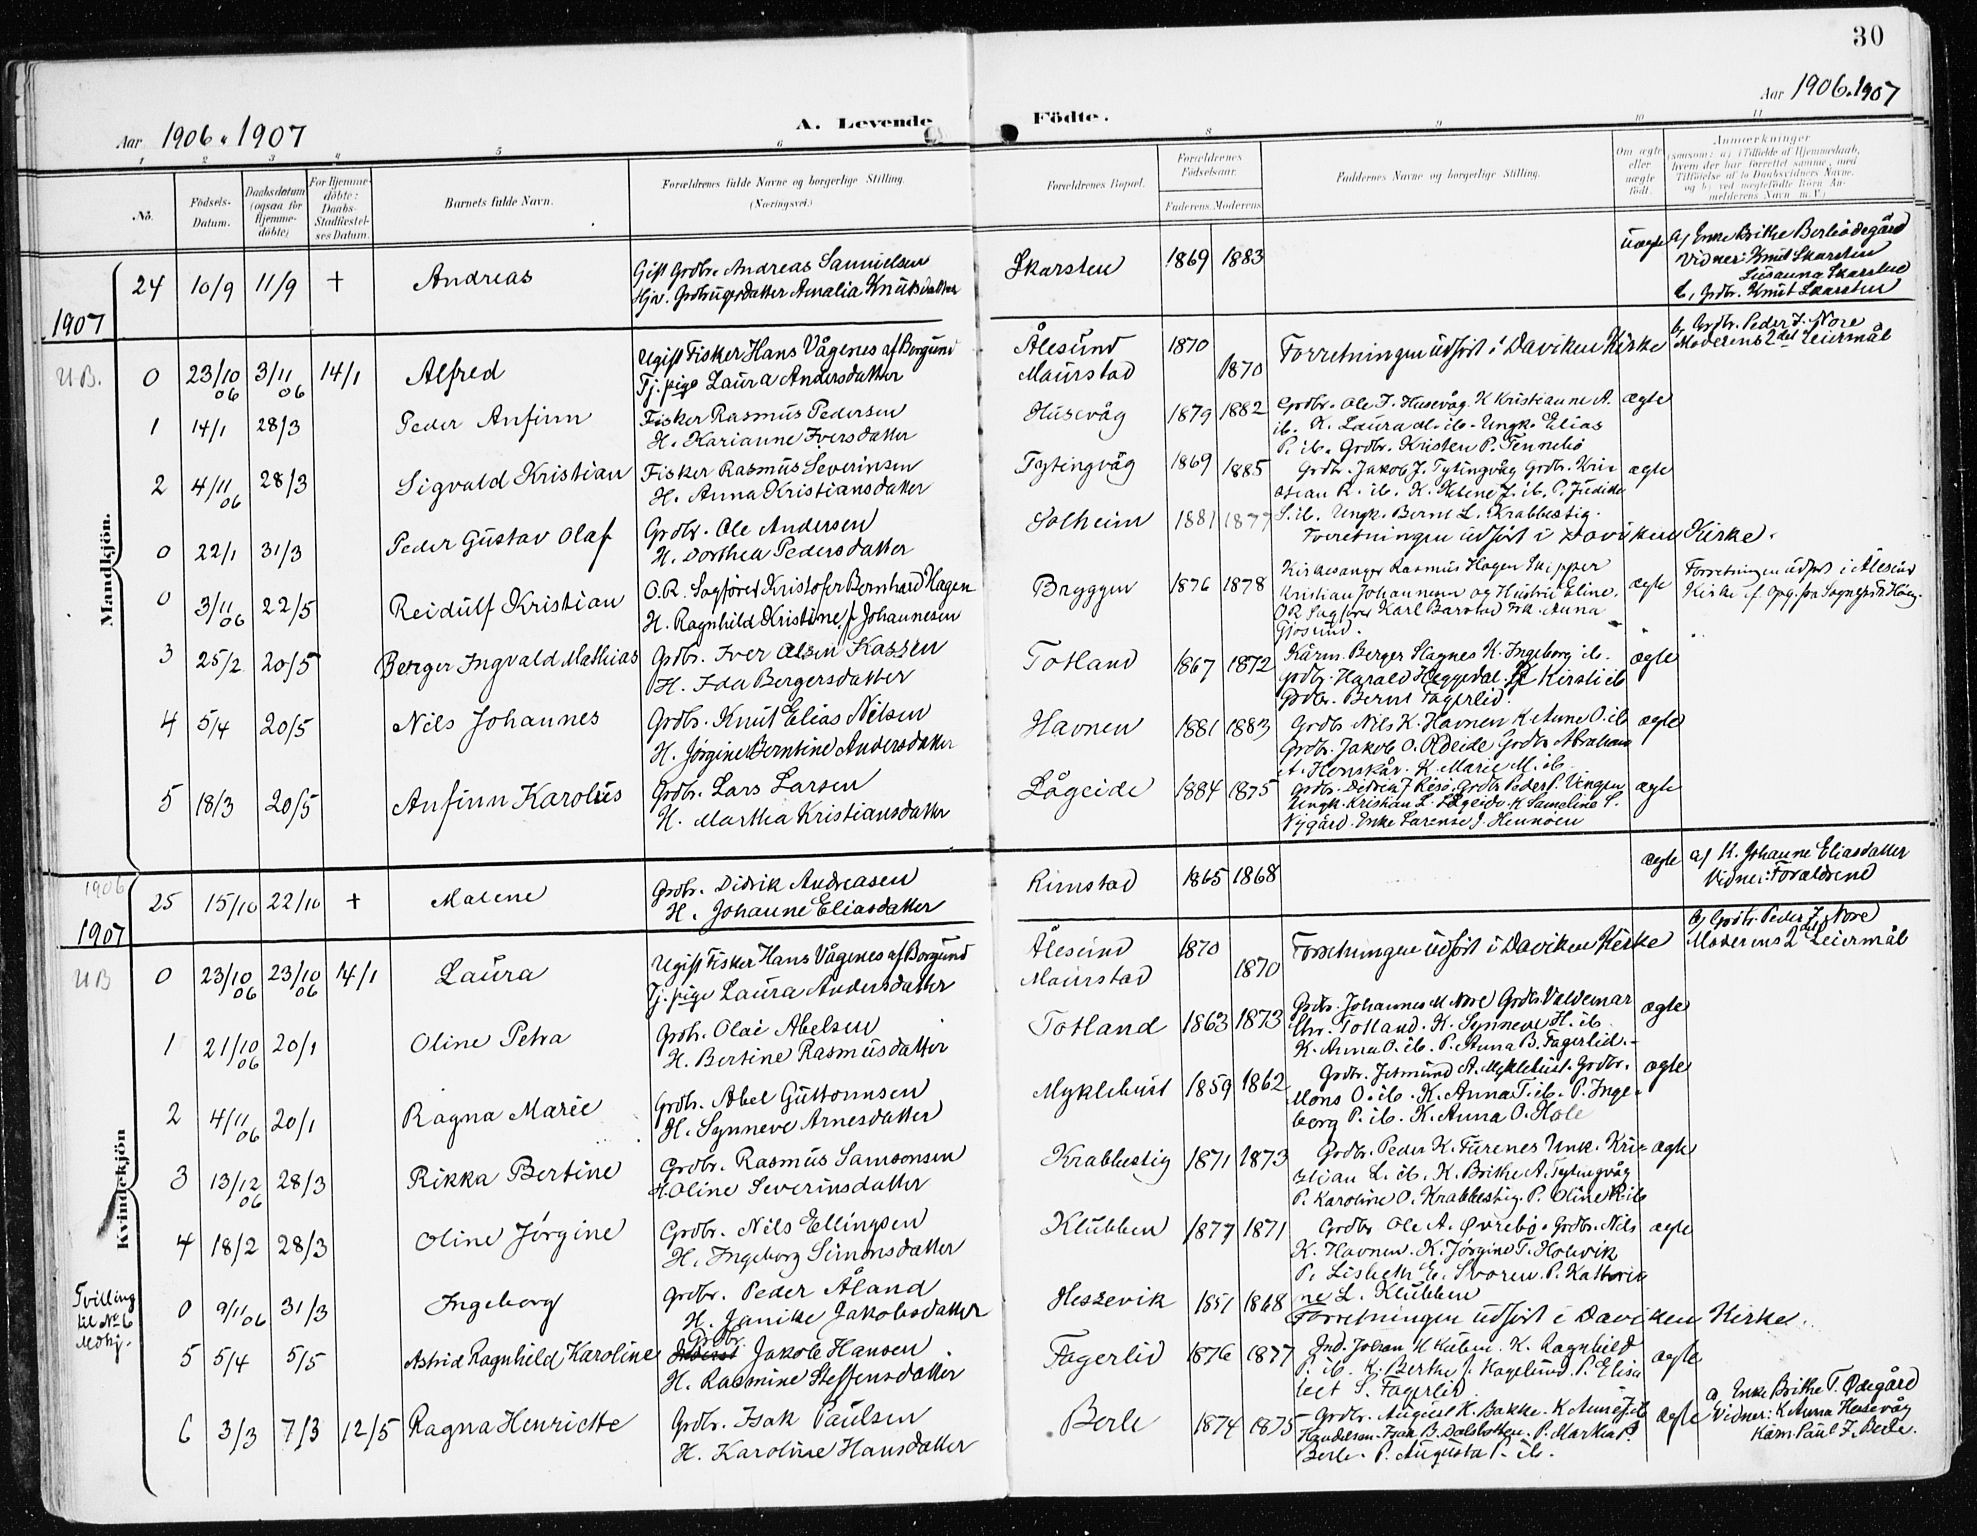 30
Aar 1906 . 1907
A. Levende
Födte.
Aar 1906. 1907
1 2 3 4 5 6 8 9 10 11
No.
Födsels-Datum.
Daabsdatum (ogsaa for Hjemme-döbte)
For Hjemme-döbte: Daabs-Stadfæstel-ses Datum.
Barnets fulde Navn.
Forældrenes fulde Navne og borgerlige Stilling.
(Næringsvei.)
Forældrenes Bopæl.
Forældrenes Födselsaar.
Faderens. Moderens.
Faddernes Navne og borgerlige Stilling.
Om ægte eller uægte födt.
Anmærkninger
(saasom: a) i Tilfælde af Hjemmedaab, hvem der har forrettet samme, med Tilföielse af to Daabsvidners Navne, og b) ved uægtefödte Börn An-melderens Navn m. V.)
Mandkjön.
24 10/9 11/9 + Andreas
Gift Grdbr. Andreas Samuelsen
Hjv. Grdbrugerdatter Amalia Knutsdatter
Skarsten 1869 1883 uægte
a) Enke Brithe Berleødegård
Vidner: Knut Skarsten
Susanna Skarsten
b, Grdbr. Knut Skarsten
1907
U.B. 0 23/10 06 3/11 06 14/1 Alfred
Ugift Fisker Hans Vågenes af Borgund
Tj. pige Laura Andersdatter
Ålesund 1870
Maurstad 1870
Forretningen udført i Daviken Kirke
b, Grdbr. Peder J. Nore
Moderens 2det Leiermål
1 14/1 28/3 Peder Anfinn
Fisker Rasmus Pedersen
H. Karianne Iversdatter
Husevåg 1879 1882
Grdbr. Ole J. Husevåg. K Kristianne A. ægte
ib. K. Laura M. ib. Ungk. Elias
P. ib. Grdbr. Kristen P. Tennebø
2 4/11 06 28/3 Sigvald Kristian
Fisker Rasmus Severinsen
H. Anna Kristiansdatter
Tytingvåg 1869 1885
Grdbr. Jakob J. Tytingvåg Grdbr. Kris- ægte
tian R. ib. K. Helene J. ib. P. Judithe
S. ib. Ungk. Bernt L. Krabbestig.
0 22/1 31/3 Peder Gustav Olaf
Grdbr. Ole Andersen
H. Dorthea Pedersdatter
Solheim 1881 1877
Forretningen udført i Daviken Kirke.
0 3/11 06 22/5 Reidulf Kristian
O.R. Sagfører Kristofer Bernhard Hagen
H. Ragnhild Kristine f. Johannesen
Bryggen 1876 1878
Kirkesanger Rasmus Hagen Skipper
Kristian Johannesen og Hustru Eline. ægte
O R Sagfører Karl Barstad Frk. Anna
Gjøsund.
Forretningen udført i Ålesund
Kirke
3 25/2 20/5 Berger Ingvald Mathias
Grdbr. Iver Olsen Kassen
H. Ida Bergersdatter
Totland 1867 1872
Kårm. Berger Hagnes K. Ingeborg ib. ægte
Grdbr. Harald Heggedal. K Kirsti ib
Grdbr. Bernt Fagerlid.
4 5/4 20/5 Nils Johannes
Grdbr. Knut Elias Nilsen
H. Jørgine Berntine Andersdatter
Havnen 1881 1883
Grdbr. Nils K. Havnen K Anne O. ib ægte
Grdbr. Jakob O. Rdeide Grdbr Abraham
A. Henskår. K. Marie M. ib.
5 18/3 20/5 Anfinn Karolus
Grdbr. Lars Larsen
H. Martha Kristiansdatter
Lågeide 1884 1875
Grdbr. Didrik J Risø. Grdbr Peder P. Vingen ægte
Ungk. Kristian L. Lågeide. K Sameline S.
Nygård. Enke Larense J. Hennøen
Kvindekjön
1906
25 15/10 22/10 + Malene
Grdbr. Didrik Andreasen
H. Johanne Eliasdatter
Rimstad 1865 1868 ægte
a) K. Johanne Eliasdatter
Vidner: Forældrene
1907
U B 0 23/10 06 23/10 06 14/1 Laura
Ugift Fisker Hans Vågenes af Borgund
Tj. pige Laura Andersdatter
Ålesund 1870
Maurstad 1870
Forretningen udført i Daviken Kirke
b, Grdbr. Peder J. Nore
Moderens 2det Leiermål
1 21/10 06 20/1 Oline Petra
Grdbr. Olai Abelsen
H. Bertine Rasmusdatter
Totland 1863 1873
Grdbr. Johannes M. Nore Grdbr. Valdemar ægte
Chr. Totland. K. Synneve H. ib.
K. Anna O. ib. P. Anna B. Fagerlid.
2 4/11 06 20/1 Ragna Marie
Grdbr. Abel Guttormsen
H. Synneve Arnesdatter
Myklebust 1859 1862
Grdbr. Jetmund A. Myklebust. Grdbr. ægte
Mons O. ib. K. Anna T. ib. P. Inge-
borg P. ib. K. Anna O. Hole
3 13/12 06 28/3 Rikka Bertine
Grdbr. Rasmus Samsonsen
H. Oline Severinsdatter
Krabbestig 1871 1873
Grdbr. Peder K. Furenes Unk. Kri- ægte
stian L. ib. K. Brithe A. Tytingvåg
P. Karoline O. Krabbestig. P. Oline R ib
4 18/2 28/3 Oline Jørgine
Grdbr. Nils Ellingsen
H. Ingeborg Simonsdatter
Klubben 1877 1871
Grdbr Ole A. Øvrebø. Grdbr. Nils ægte
K. Havnen. K. Jørgine T. Holevik
P. Lisbeth E. Svoren. P. Kathrin
ne L. Klubben
Tvilling til No 6 Mdkj.
0 9/11 06 31/3 Ingeborg
Grdbr. Peder Åland
H. Janike Jakobsdatter
Hessevik 1851 1868
Forretningen udført i Daviken Kirke.
5 5/4 5/5 Astrid Ragnhild Karoline
Grdbr. Jakob Hansen
H. Rasmine Steffensdatter
Fagerlid 1876 1877
Ind. Johan K. K. Ragnhild ægte
P. ib. K. Berthe J. Hagelund. P. Elisa
bet S. Fagerlid
6 3/3 7/3 12/5 Ragna Henriette
Grdbr. Isak Paulsen
H. Karoline Hansdatter
Berle 1874 1875
Grdbr. August K. Bakke. K Anne J. ib ægte
Handelsm. Isak B. Dalsbotten. P. Marthe P.
Berle. P. Augusta P. ib.
a, Enke Brithe T. Ødegård
Vidner: K Anna Husevåg
Kårm. Paul J. Berle.